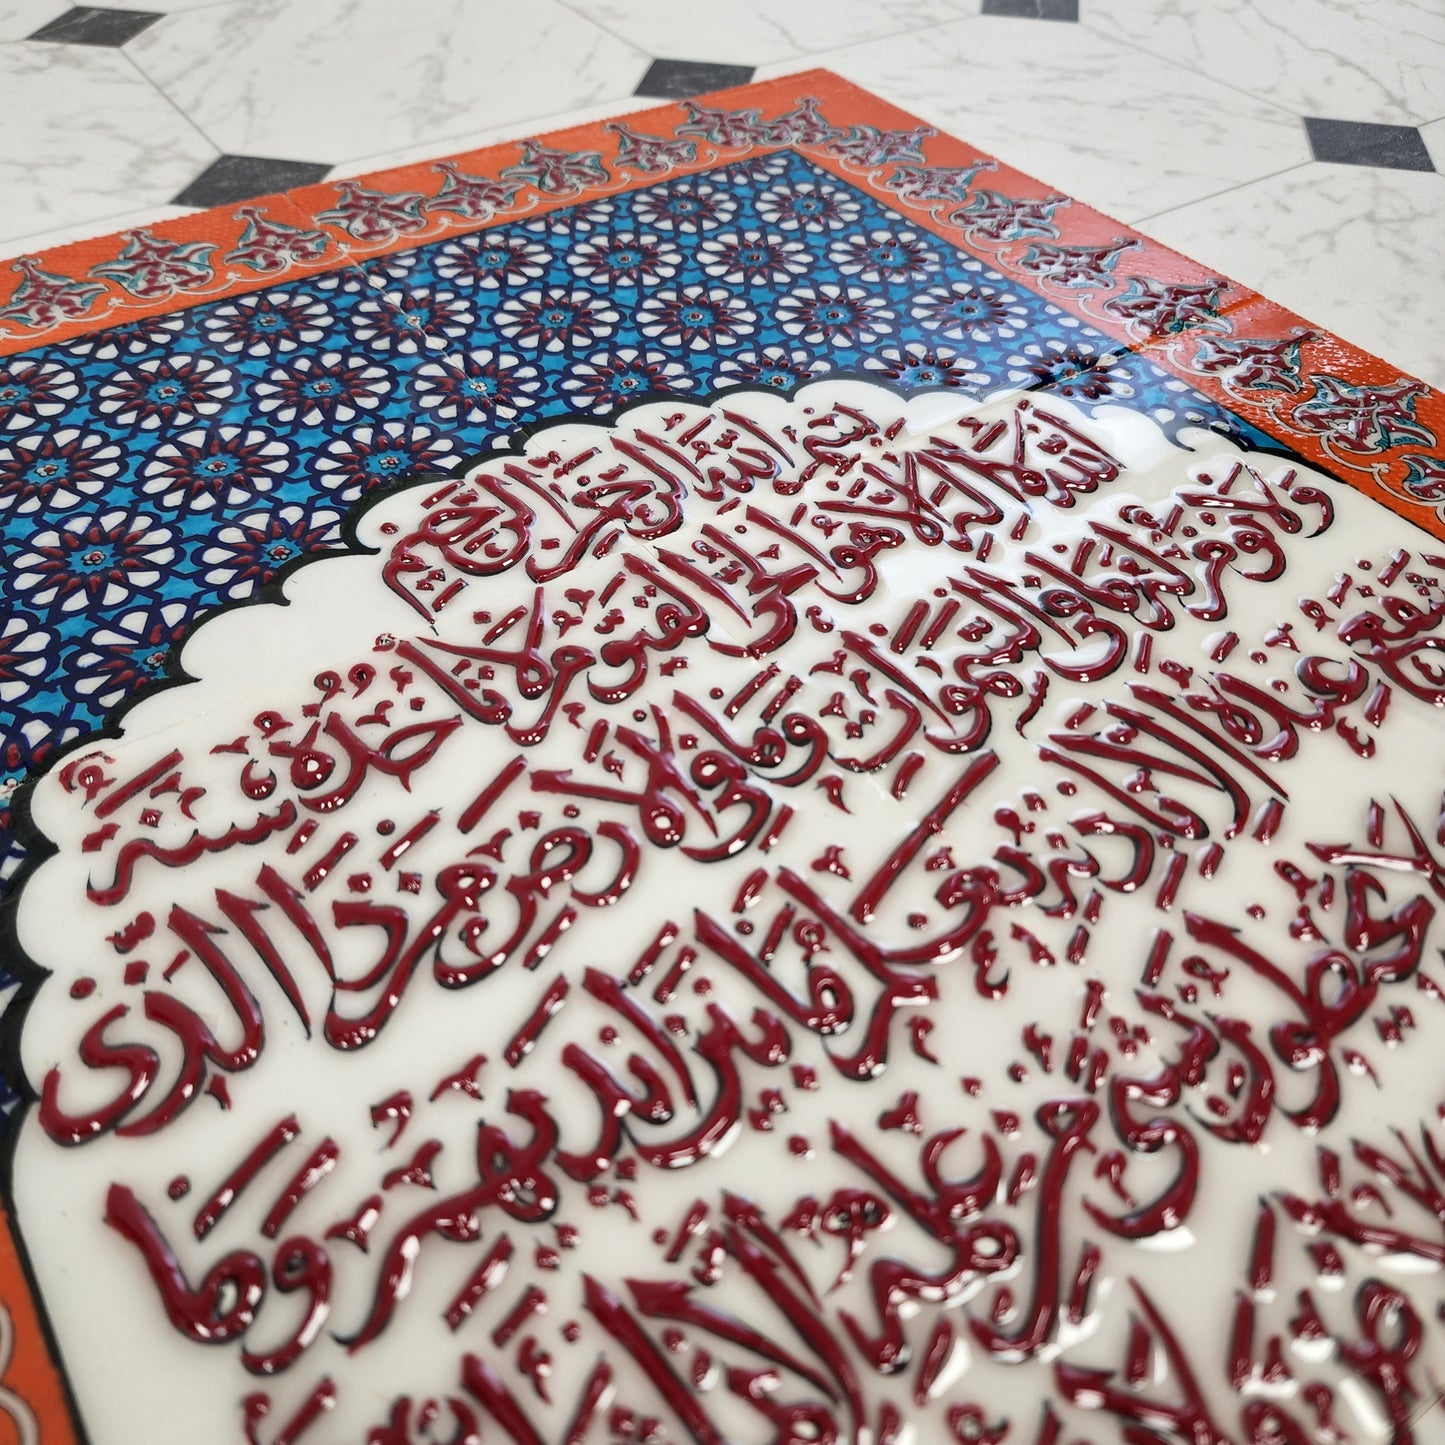 بِسْمِ اللّٰهِ الرَّحْمٰنِ الرَّحِيمِ
اَللّٰهُ لَا اِلٰهَ اِلَّا هُوَ الْحَيُّ الْقَيُّومُ لَا تَأْخُذُهُ سِنَةٌ
وَلَا نَوْمٌ لَهُ مَا فِي السَّمٰوَاتِ وَمَا فِي الْاَرْضِ مَنْ ذَا الَّذِي
يَشْفَعُ عِنْدَهُ اِلَّا بِاِذْنِهِ يَعْلَمُ مَا بَيْنَ اَيْدِيهِمْ وَمَا
يُحِيطُونَ بِشَيْءٍ مِنْ عِلْمِهِ اِلَّا